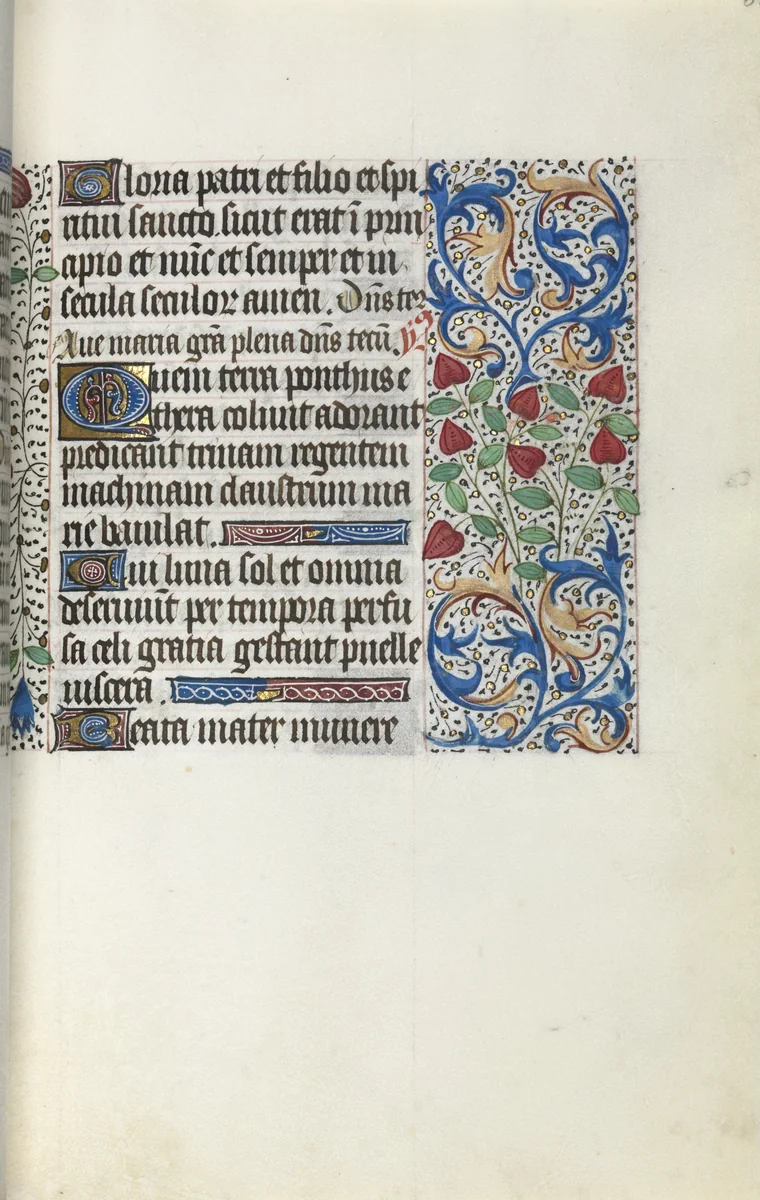 Gloria patri et filio et spi
ritui sancto. sicut erat ī prin
cipio et nūc et semper et in
secula seculoꝝ amen. Dn̄s tec
Aue maria grā plena dn̄s tecū.
Quem terra ponthus e
thera colunt adorant
predicant trinam regentem
machinam claustrum ma
rie baiulat.
Cui luna sol et omnia
deseruiūt per tempora perfu
sa celi gratia gestant puelle
uiscera.
Beata mater munere